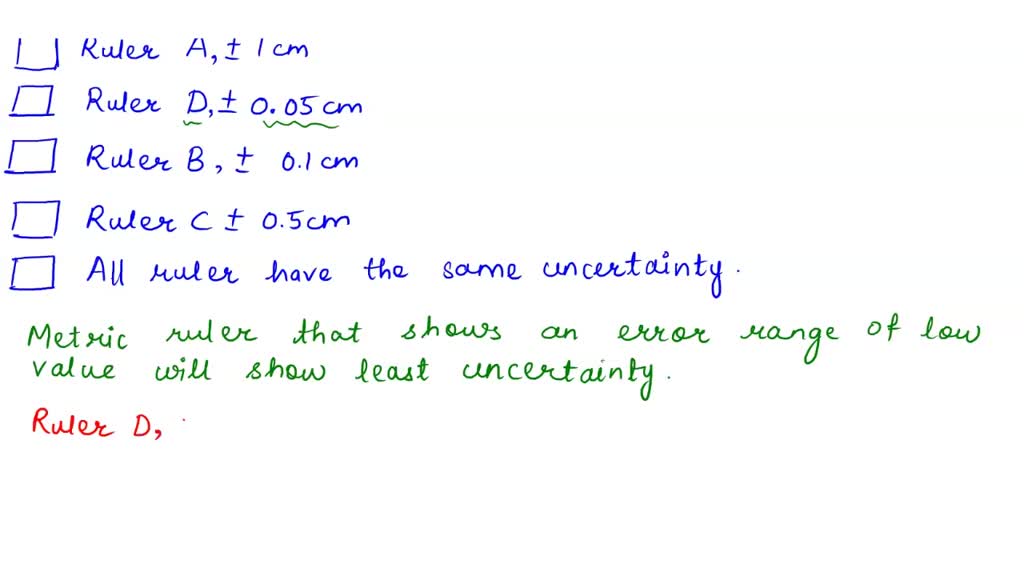 Ruler A, ± 1 cm
Ruler D, ± 0.05 cm
Ruler B, ± 0.1 cm
Ruler C ± 0.5 cm
All ruler have the same uncertainty.
Metric ruler that shows an error range of low
value will show least uncertainty.
Ruler D,